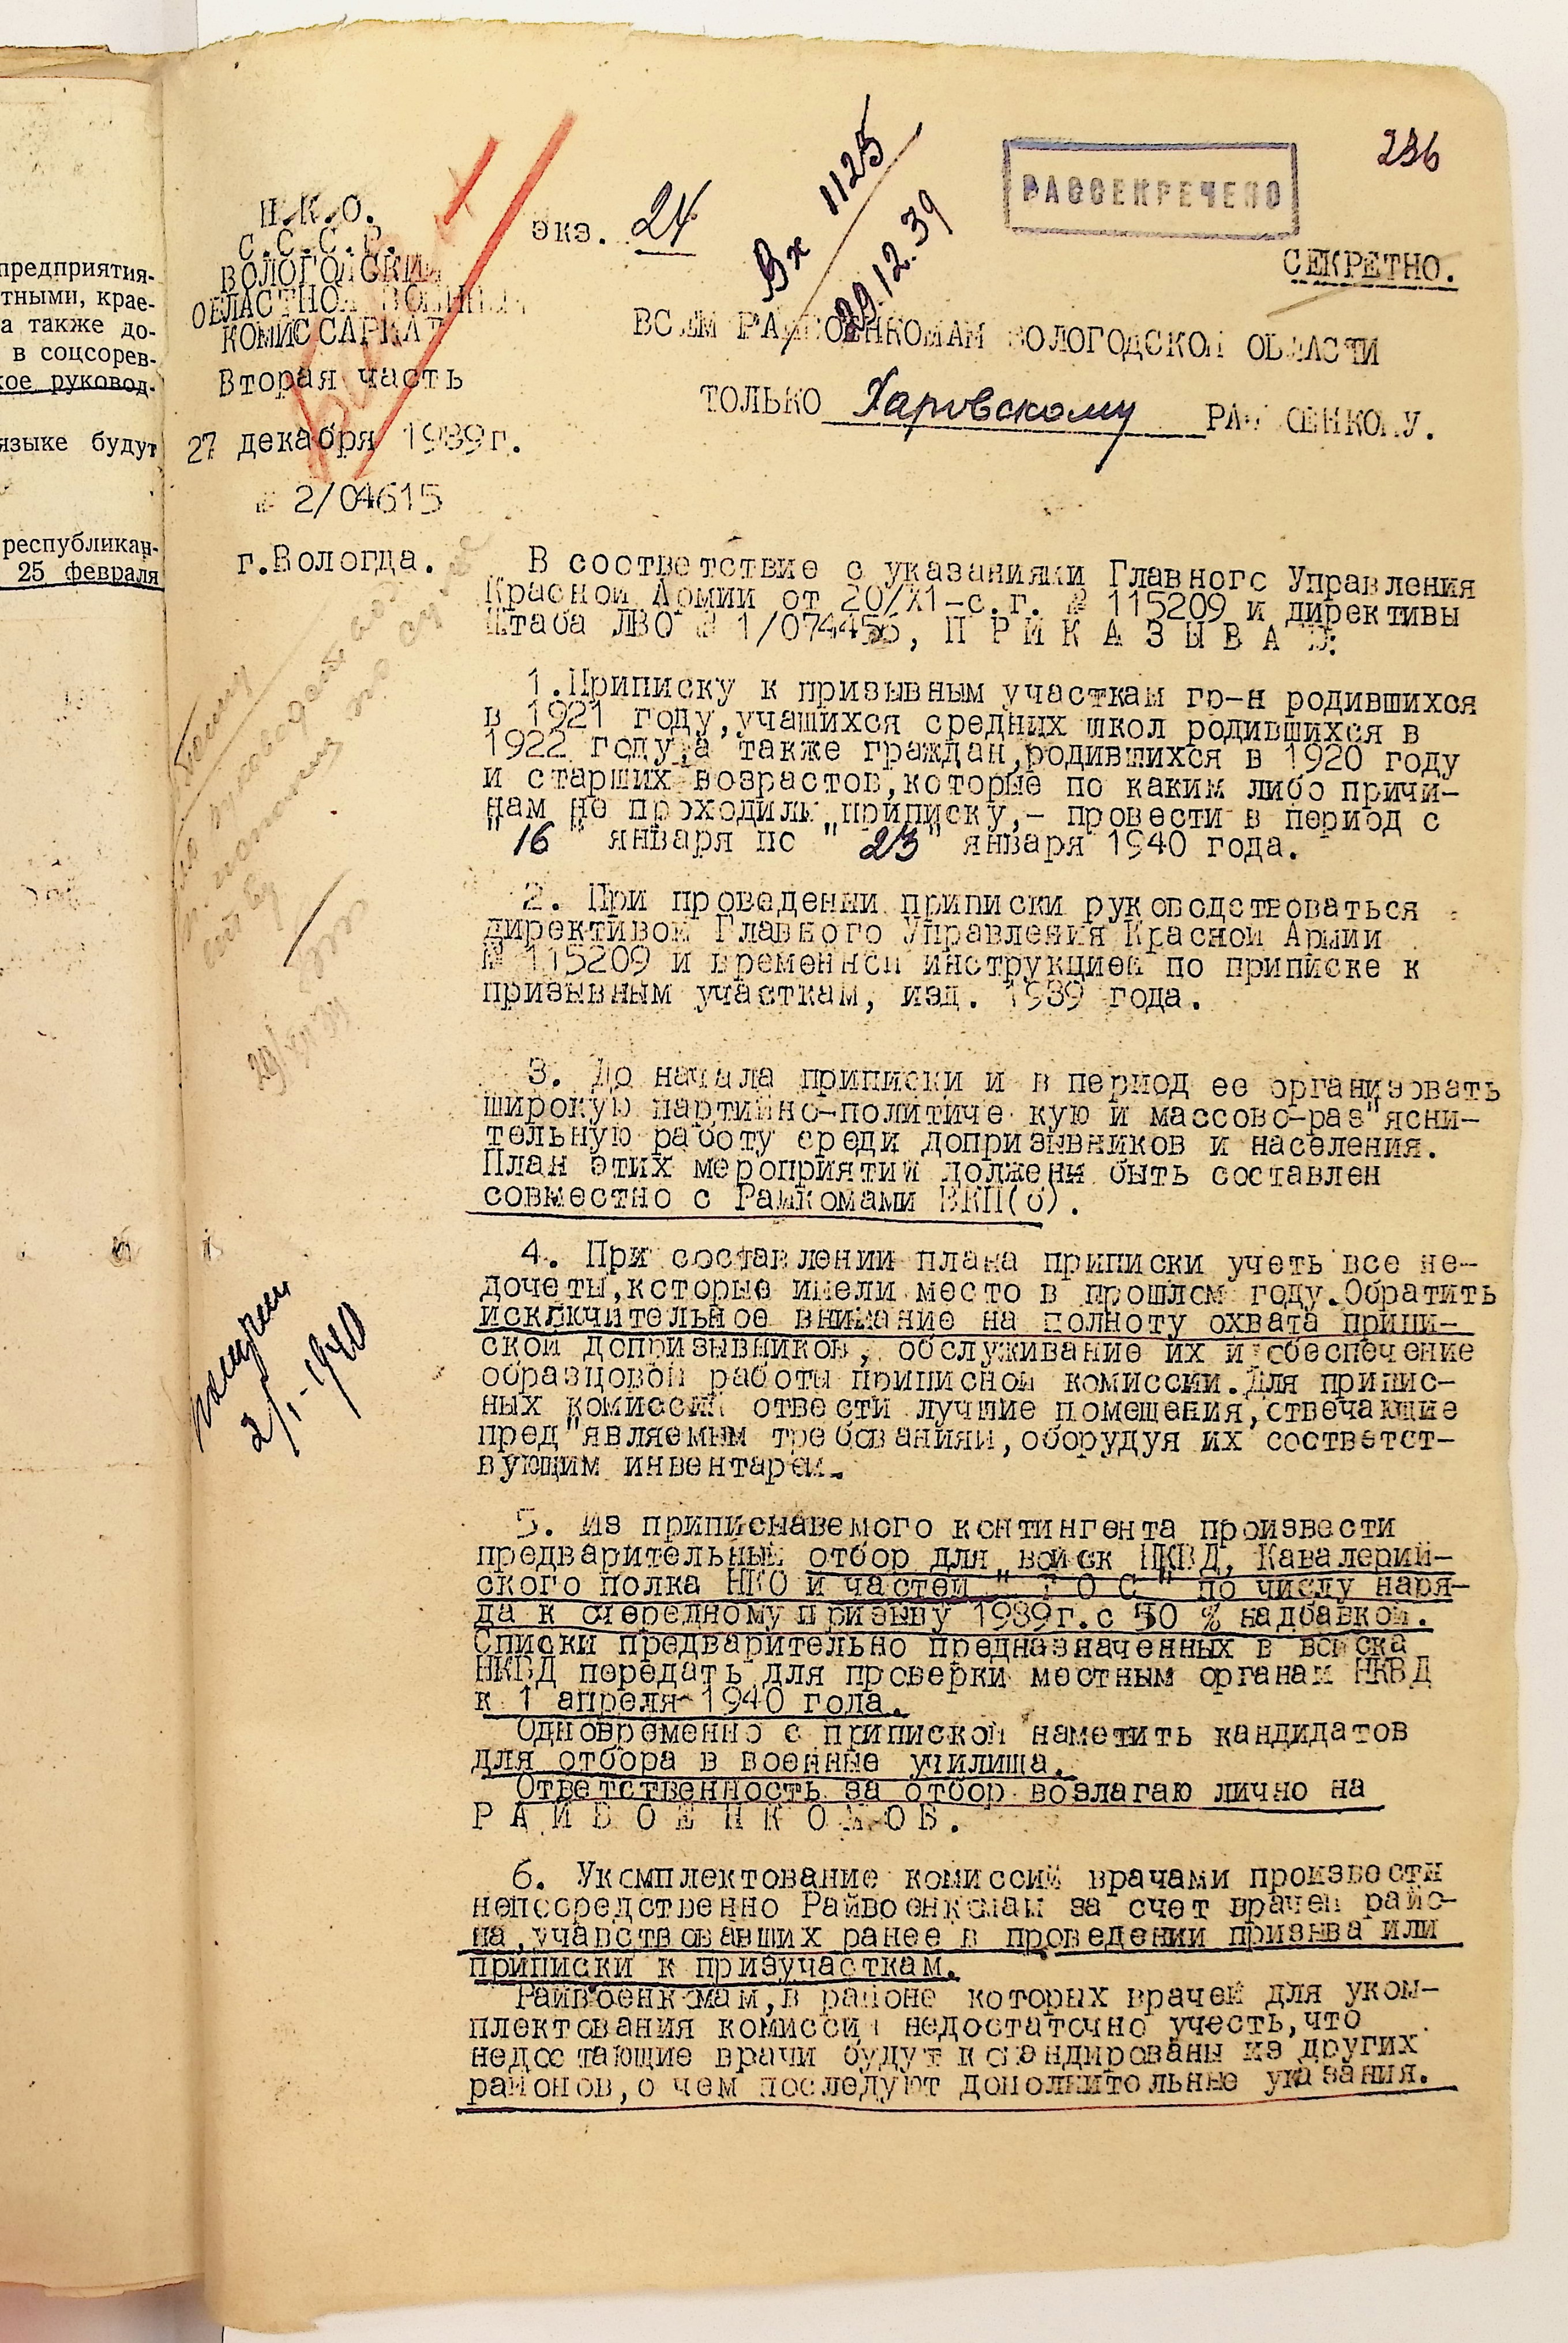 предприятия-
тными, крае-
а также до-
в соцсорев-
кое руковод-
языке будут
республикан-
25 февраля
236
РАССЕКРЕЧЕНО
Н.К.О.
С.С.С.Р.
ВОЛОГОДСКИЙ
ОБЛАСТНОЙ ВОЕННЫЙ
КОМИССАРИАТ
Вторая часть
27 декабря 1939г.
№ 2/04615
г.Вологда.
экз. 24
Вх 1125
29.12.39
СЕКРЕТНО.
ВСЕМ РАЙВОЕНКОМАМ ВОЛОГОДСКОЙ ОБЛАСТИ
ТОЛЬКО Харовскому РАЙВОЕНКОМУ.
В соответствие с указаниями Главного Управления
Красной Армии от 20/Х1-с.г. № 115209 и директивы
Штаба ЛВО № 1/074456, П Р И К А З Ы В А Ю:
1.Приписку к призывным участкам гр-н родившихся
в 1921 году,учащихся средних школ родившихся в
1922 году,а также граждан,родившихся в 1920 году
и старших возрастов,которые по каким либо причи-
нам не проходили приписку,- провести в период с
"16" января по "23" января 1940 года.
2. При проведении приписки руководствоваться
директивой Главного Управления Красной Армии
№ 115209 и временной инструкцией по приписке к
призывным участкам, изд. 1939 года.
3. До начала приписки и в период ее организовать
широкую партийно-политиче кую и массово-раз"ясни-
тельную работу среди допризывников и населения.
План этих мероприятий должен быть составлен
совместно с Райкомами ВКП(б).
4. При составлении плана приписки учеть все не-
дочеты,которые имели место в прошлом году.Обратить
исключительное внимание на полноту охвата припи-
ской допризывников, обслуживание их и обеспечение
образцовой работы приписной комиссии.Для припис-
ных комиссий отвести лучшие помещения,отвечающие
пред"являемым требованиям,оборудуя их соответст-
вующим инвентарем.
5. Из приписываемого контингента произвести
предварительный отбор для войск НКВД, Кавалерий-
ского полка НКО и частей " Г О С " по числу наря-
да к очередному призыву 1939г.с 50 % надбавкой.
Списки предварительно предназначенных в войска
НКВД передать для проверки местным органам НКВД
к 1 апреля 1940 года.
Одновременно с припиской наметить кандидатов
для отбора в военные училища.
Ответственность за отбор возлагаю лично на
Р А Й В О Е Н К О М О В.
6. Укомплектование комиссий врачами произвести
непосредственно Райвоенкомам за счет врачей райо-
на,учавствовавших ранее в проведении призыва или
приписки к призучасткам.
Райвоенкомам,в районе которых врачей для уком-
плектования комиссий недостаточно учесть,что
недостающие врачи будут командированы из других
районов,о чем последуют дополнительные указания.
29/XII 39
2/I-1940